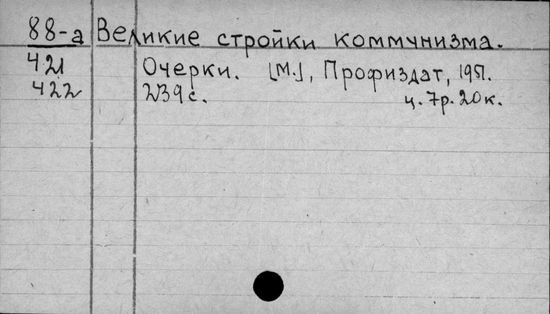 88-а Великие стройки коммунизма.
421 Очерки. [М.], Профиздат, 1951.
422 239 с. ц. 7р. 20к.